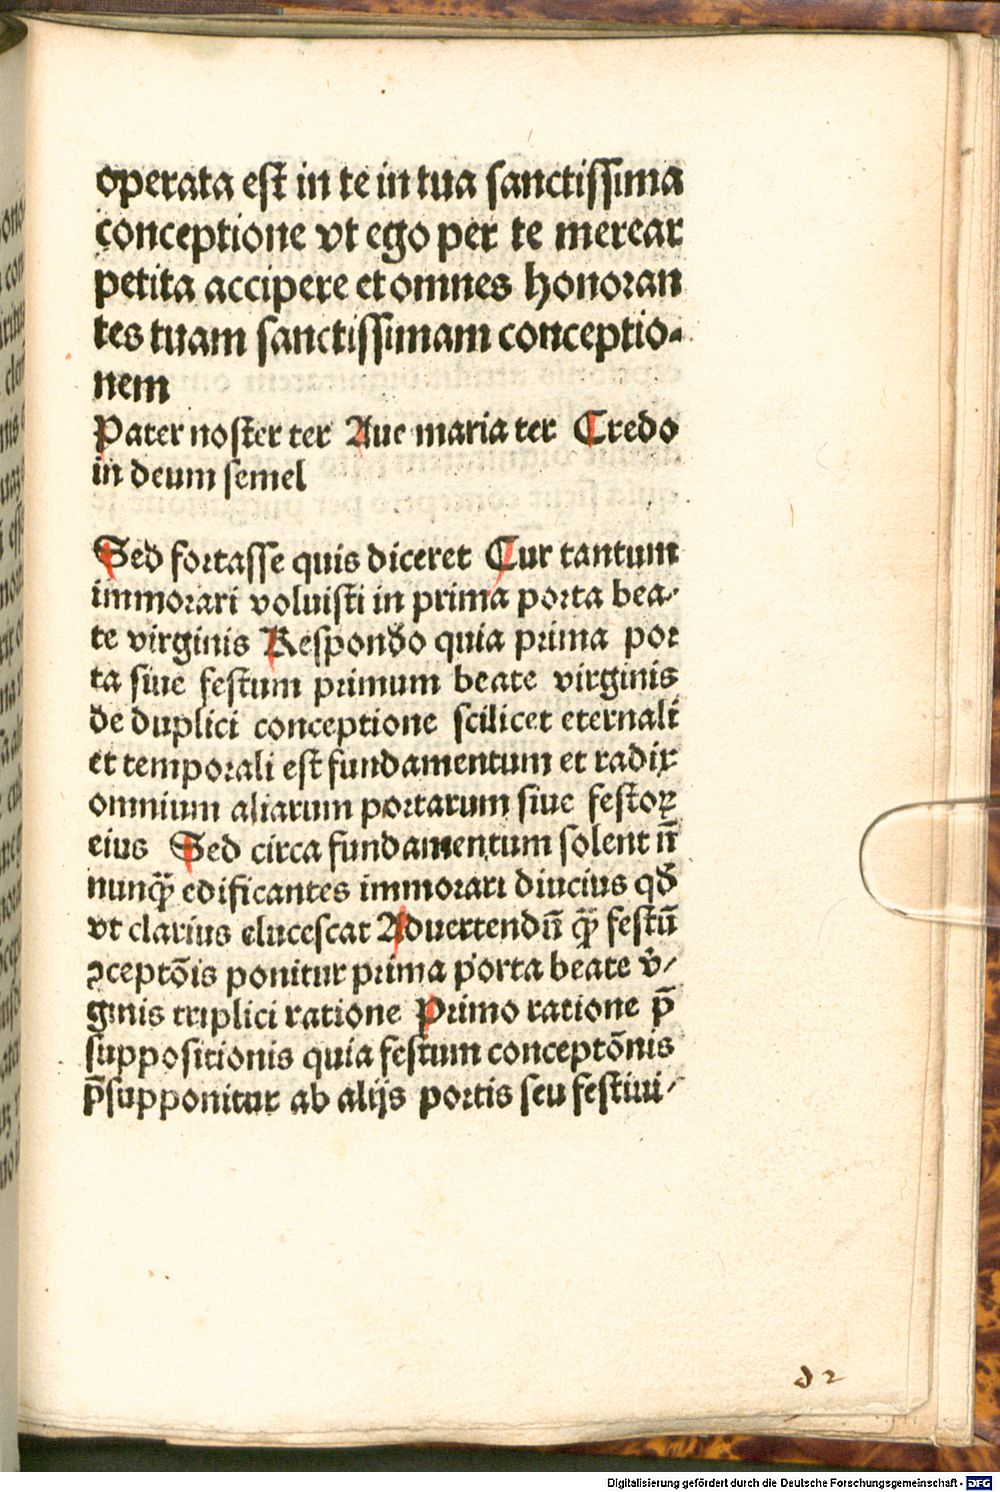 operata est in te in tua sanctissima
conceptione vt ego per te merear
petita accipere et omnes honoran
tes tuam sanctissimam conceptio-
nem
Pater noster ter Aue maria ter Credo
in deum semel
Sed fortasse quis diceret Cur tantum
immorari voluisti in prima porta bea-
te virginis Respondo quia prima por
ta siue festum primum beate virginis
de duplici conceptione scilicet eternali
et temporali est fundamentum et radix
omnium aliarum portarum siue festoꝝ
eius Sed circa fundamentum solent nͫ
nunqͣꝫ edificantes immorari diucius qđ
vt clarius elucescat Aduertendū qͣꝫ festū
ꝯceptōis ponitur prima porta beate v̄-
ginis triplici ratione Primo ratione p̄
suppositionis quia festum conceptōnis
p̄supponitur ab alijs portis seu festiui-
d 2
Digitalisierung gefördert durch die Deutsche Forschungsgemeinschaft - DFG